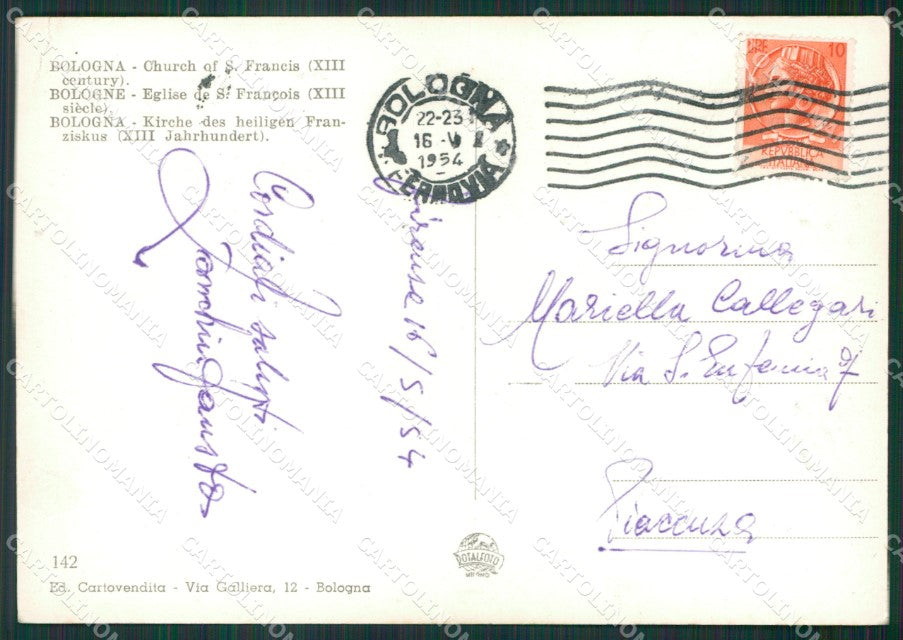 BOLOGNA - Church of S. Francis (XIII
century).
BOLOGNE - Eglise de S. François (XIII
siècle).
BOLOGNA - Kirche des heiligen Fran-
ziskus (XIII Jahrhundert).
BOLOGNA
22-23
16-V
1954
FERROVIA
LIRE 10
REPVBBLICA
ITALIANA
Cordiali saluti
16/5/54
Signorina
Mariella Callegari
Via S. Eufemia 7
Piacenza
ROTALFOTO
MILANO
142
Ed. Cartovendita - Via Galliera, 12 - Bologna
CARTOLINOMANIA